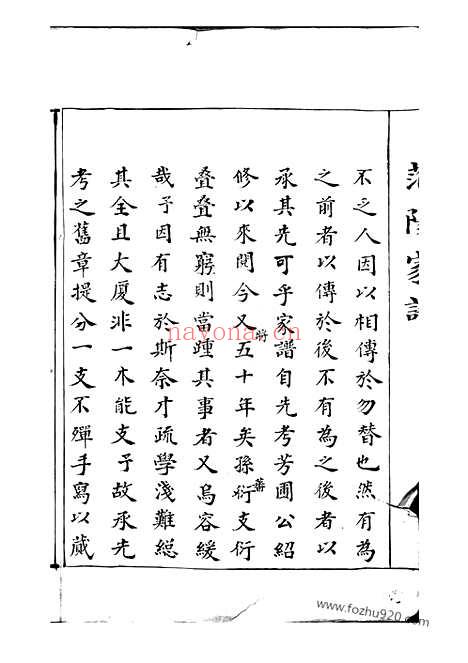 家譜
不乏人因以相傳於勿替也然有為
之前者以傳於後不有為之後者以
承其先可乎家譜自先考芳圃公紹
修以來閱今又將五十年矣孫衍蕃支衍
疊疊無窮則當踵其事者又烏容緩
哉予因有志於斯奈才疏學淺難總
其全且大廈非一木能支予故承先
考之舊章提分一支不殫手寫以藏
nayona.cn
www.fozhu920.com